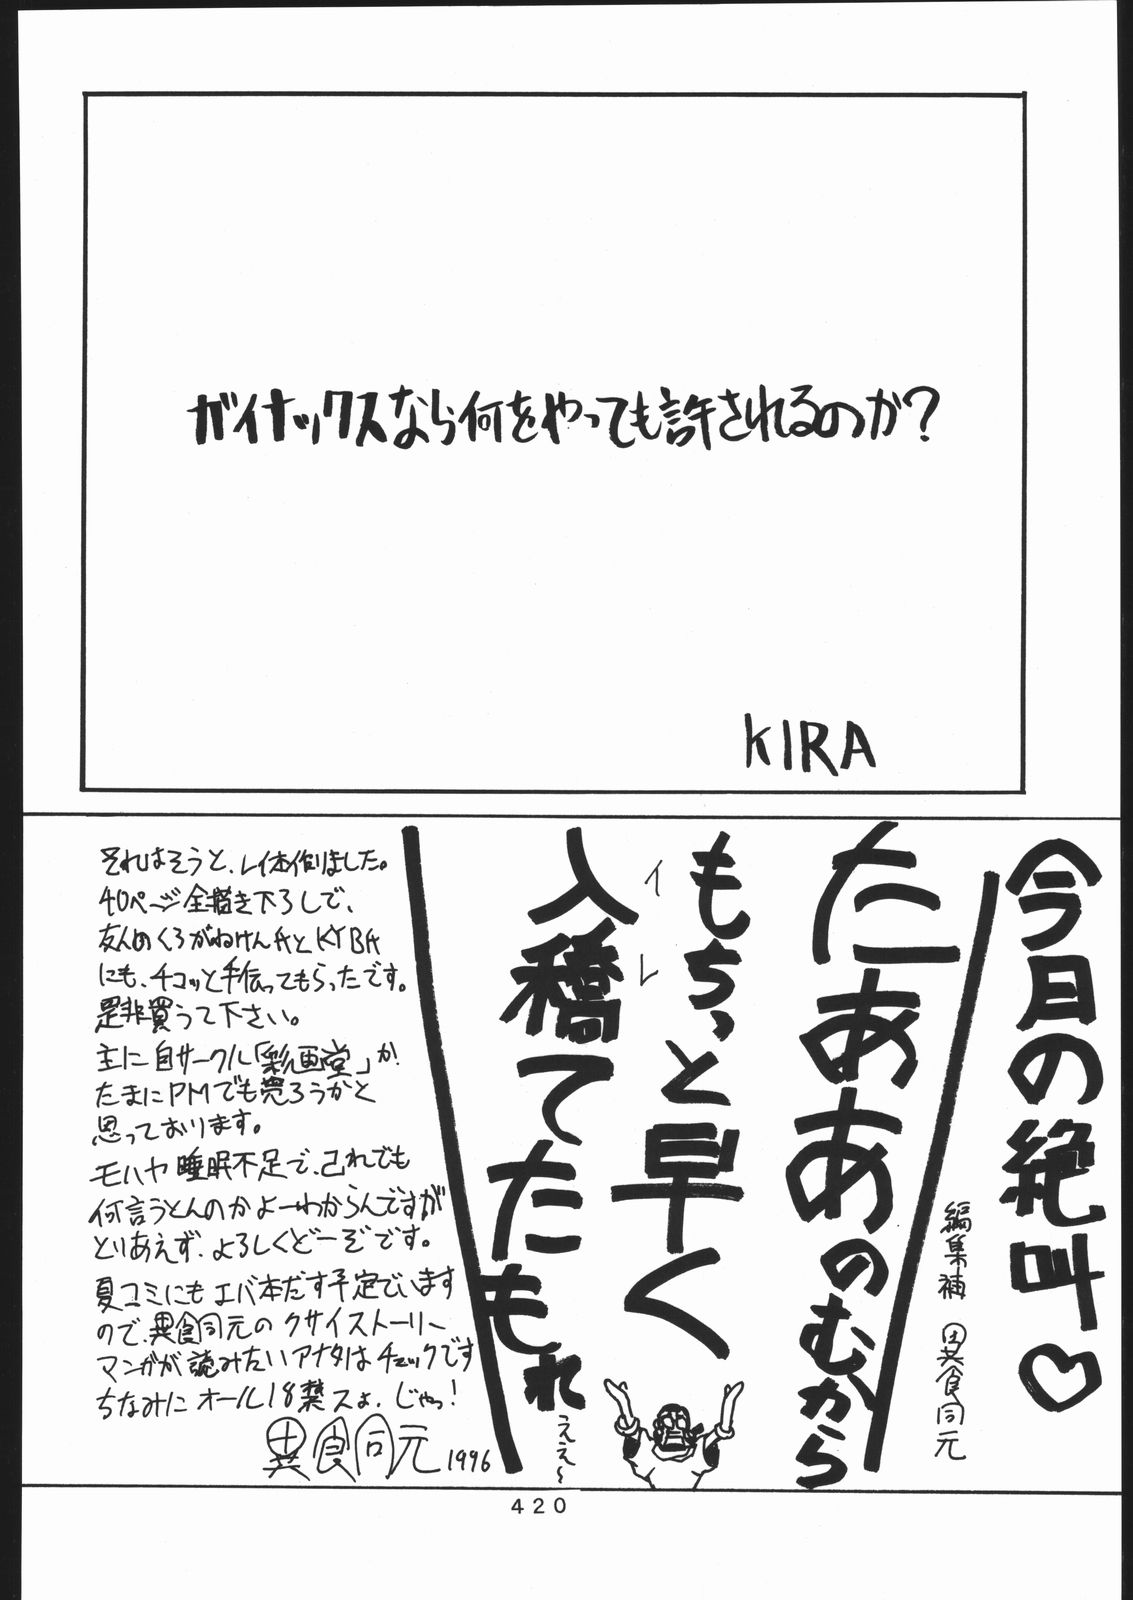 ガイナックスなら何をやっても許されるのか?
KIRA
今月の絶叫♡
編集補 異食同元
たああのむから
もちっと早く
イレ
入稿てたもれ
ええ~
それはそうと、レイ本作りました。
40ページ全描き下ろしで、
友人のくろがねけんAとKYBA
にも、チコッと手伝ってもらったです。
是非買うて下さい。
主に自サークル「彩画堂」か
たまにPMでも売ろうかと
思っております。
モハヤ睡眠不足で、己れでも
何言うとんのかよーわからんですが
とりあえず、よろしくどーぞです。
夏コミにもエバ本だす予定でいます
ので、異食同元のクサイストーリー
マンガが読みたいアナタはチェックです
ちなみにオール18禁スよ、じゃっ!
異食同元 1996
420